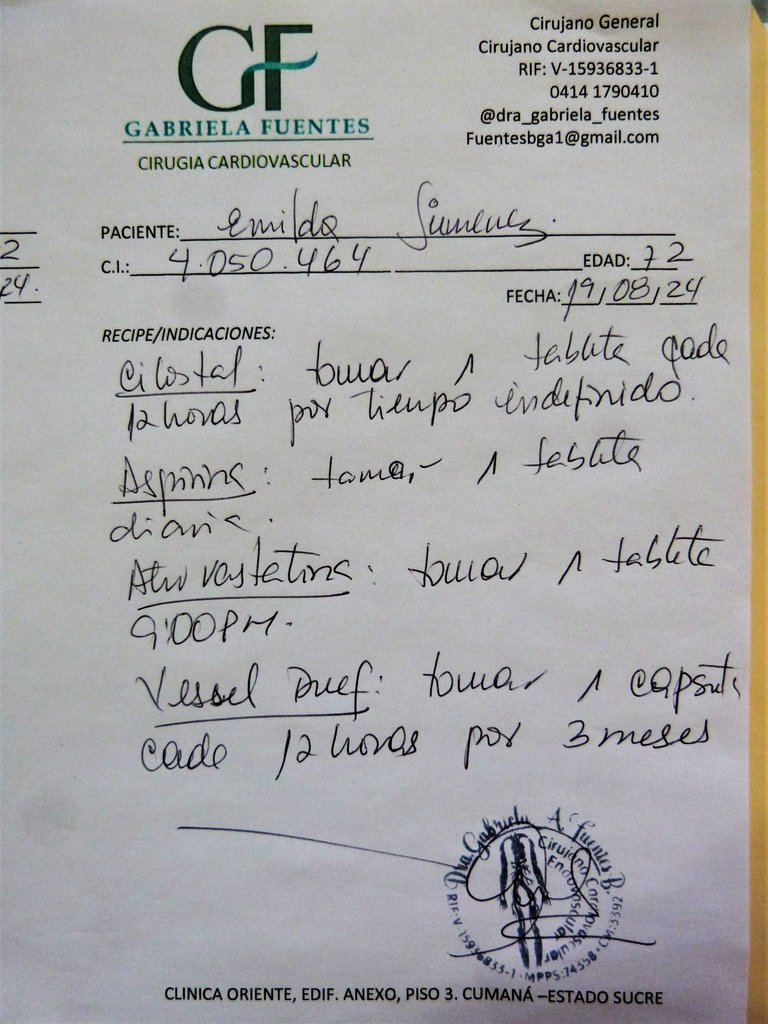 GF
GABRIELA FUENTES
CIRUGIA CARDIOVASCULAR
Cirujano General
Cirujano Cardiovascular
RIF: V-15936833-1
0414 1790410
@dra_gabriela_fuentes
Fuentesbga1@gmail.com
PACIENTE: Emilda Jimenez.
C.I.: 4.050.464 EDAD: 72
2
FECHA: 19,08,24
24.
RECIPE/INDICACIONES:
Cilostal: tomar 1 tableta cada
12 horas por tiempo indefinido.
Aspirina: tomar 1 tableta
diaria.
Atorvastatina: tomar 1 tableta
9:00PM.
Vessel Duef: tomar 1 capsula
cada 12 horas por 3 meses
Dra. Gabriela A. Fuentes B.
Cirujano Cardiovascular
Endovascular
RIF: V 15936833-1 · MPPS: 74358 · CM: 3392
CLINICA ORIENTE, EDIF. ANEXO, PISO 3. CUMANÁ –ESTADO SUCRE